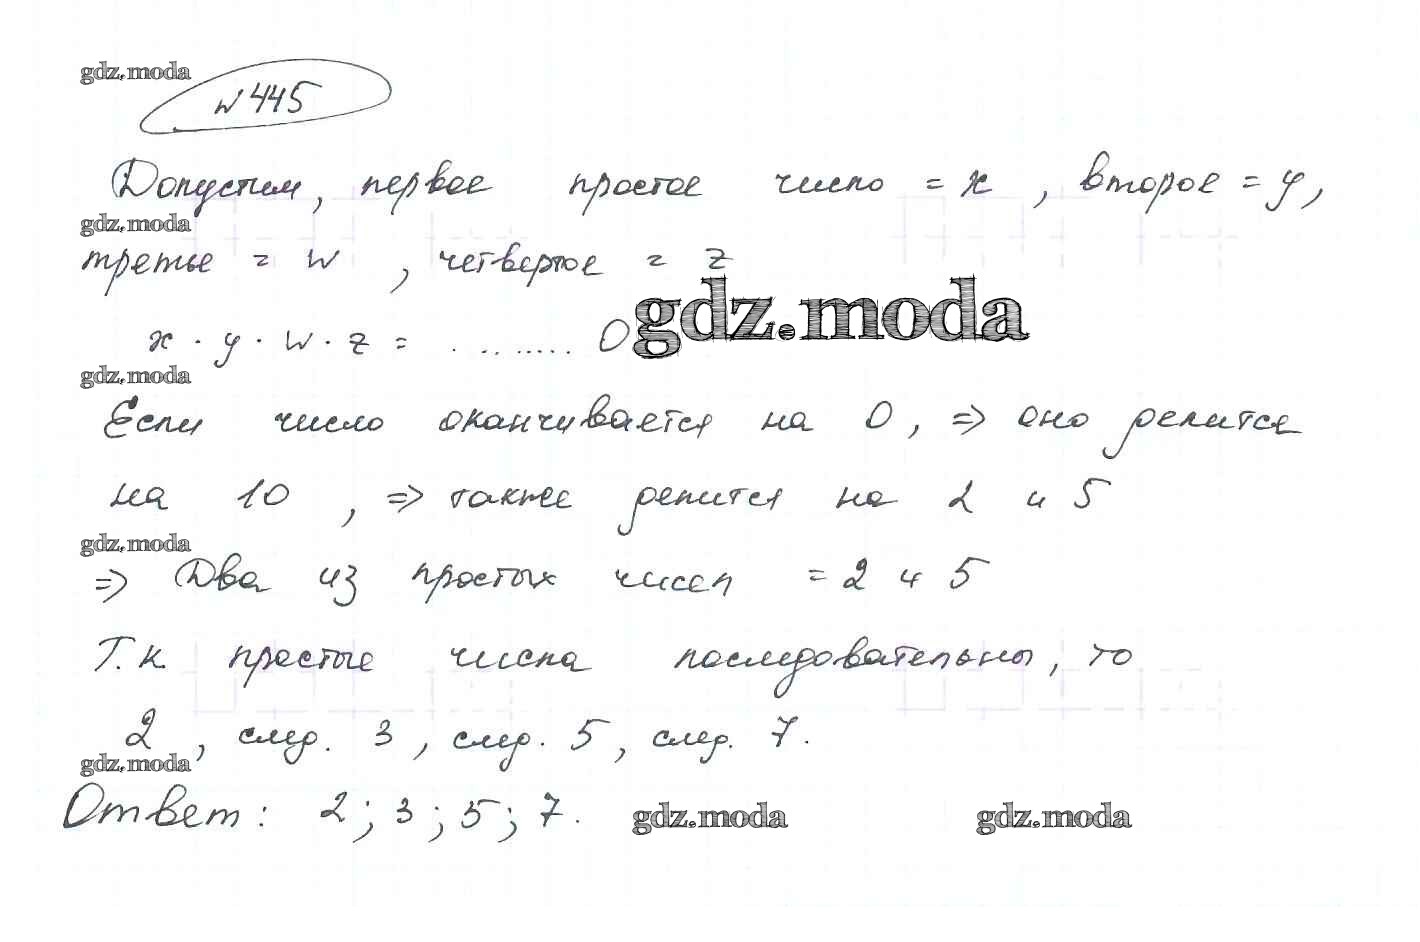 gdz.moda
№ 445
Допустим, первое простое число = x , второе = y,
gdz.moda
третье = w , четвертое = z
gdz.moda
x · y · w · z = ......... 0
gdz.moda
Если число оканчивается на 0, => оно делится
на 10 , => также делится на 2 и 5
gdz.moda
=> Два из простых чисел = 2 и 5
Т.к простые числа последовательны, то
2 , след. 3 , след. 5 , след. 7.
gdz.moda
Ответ: 2; 3; 5; 7.
gdz.moda gdz.moda